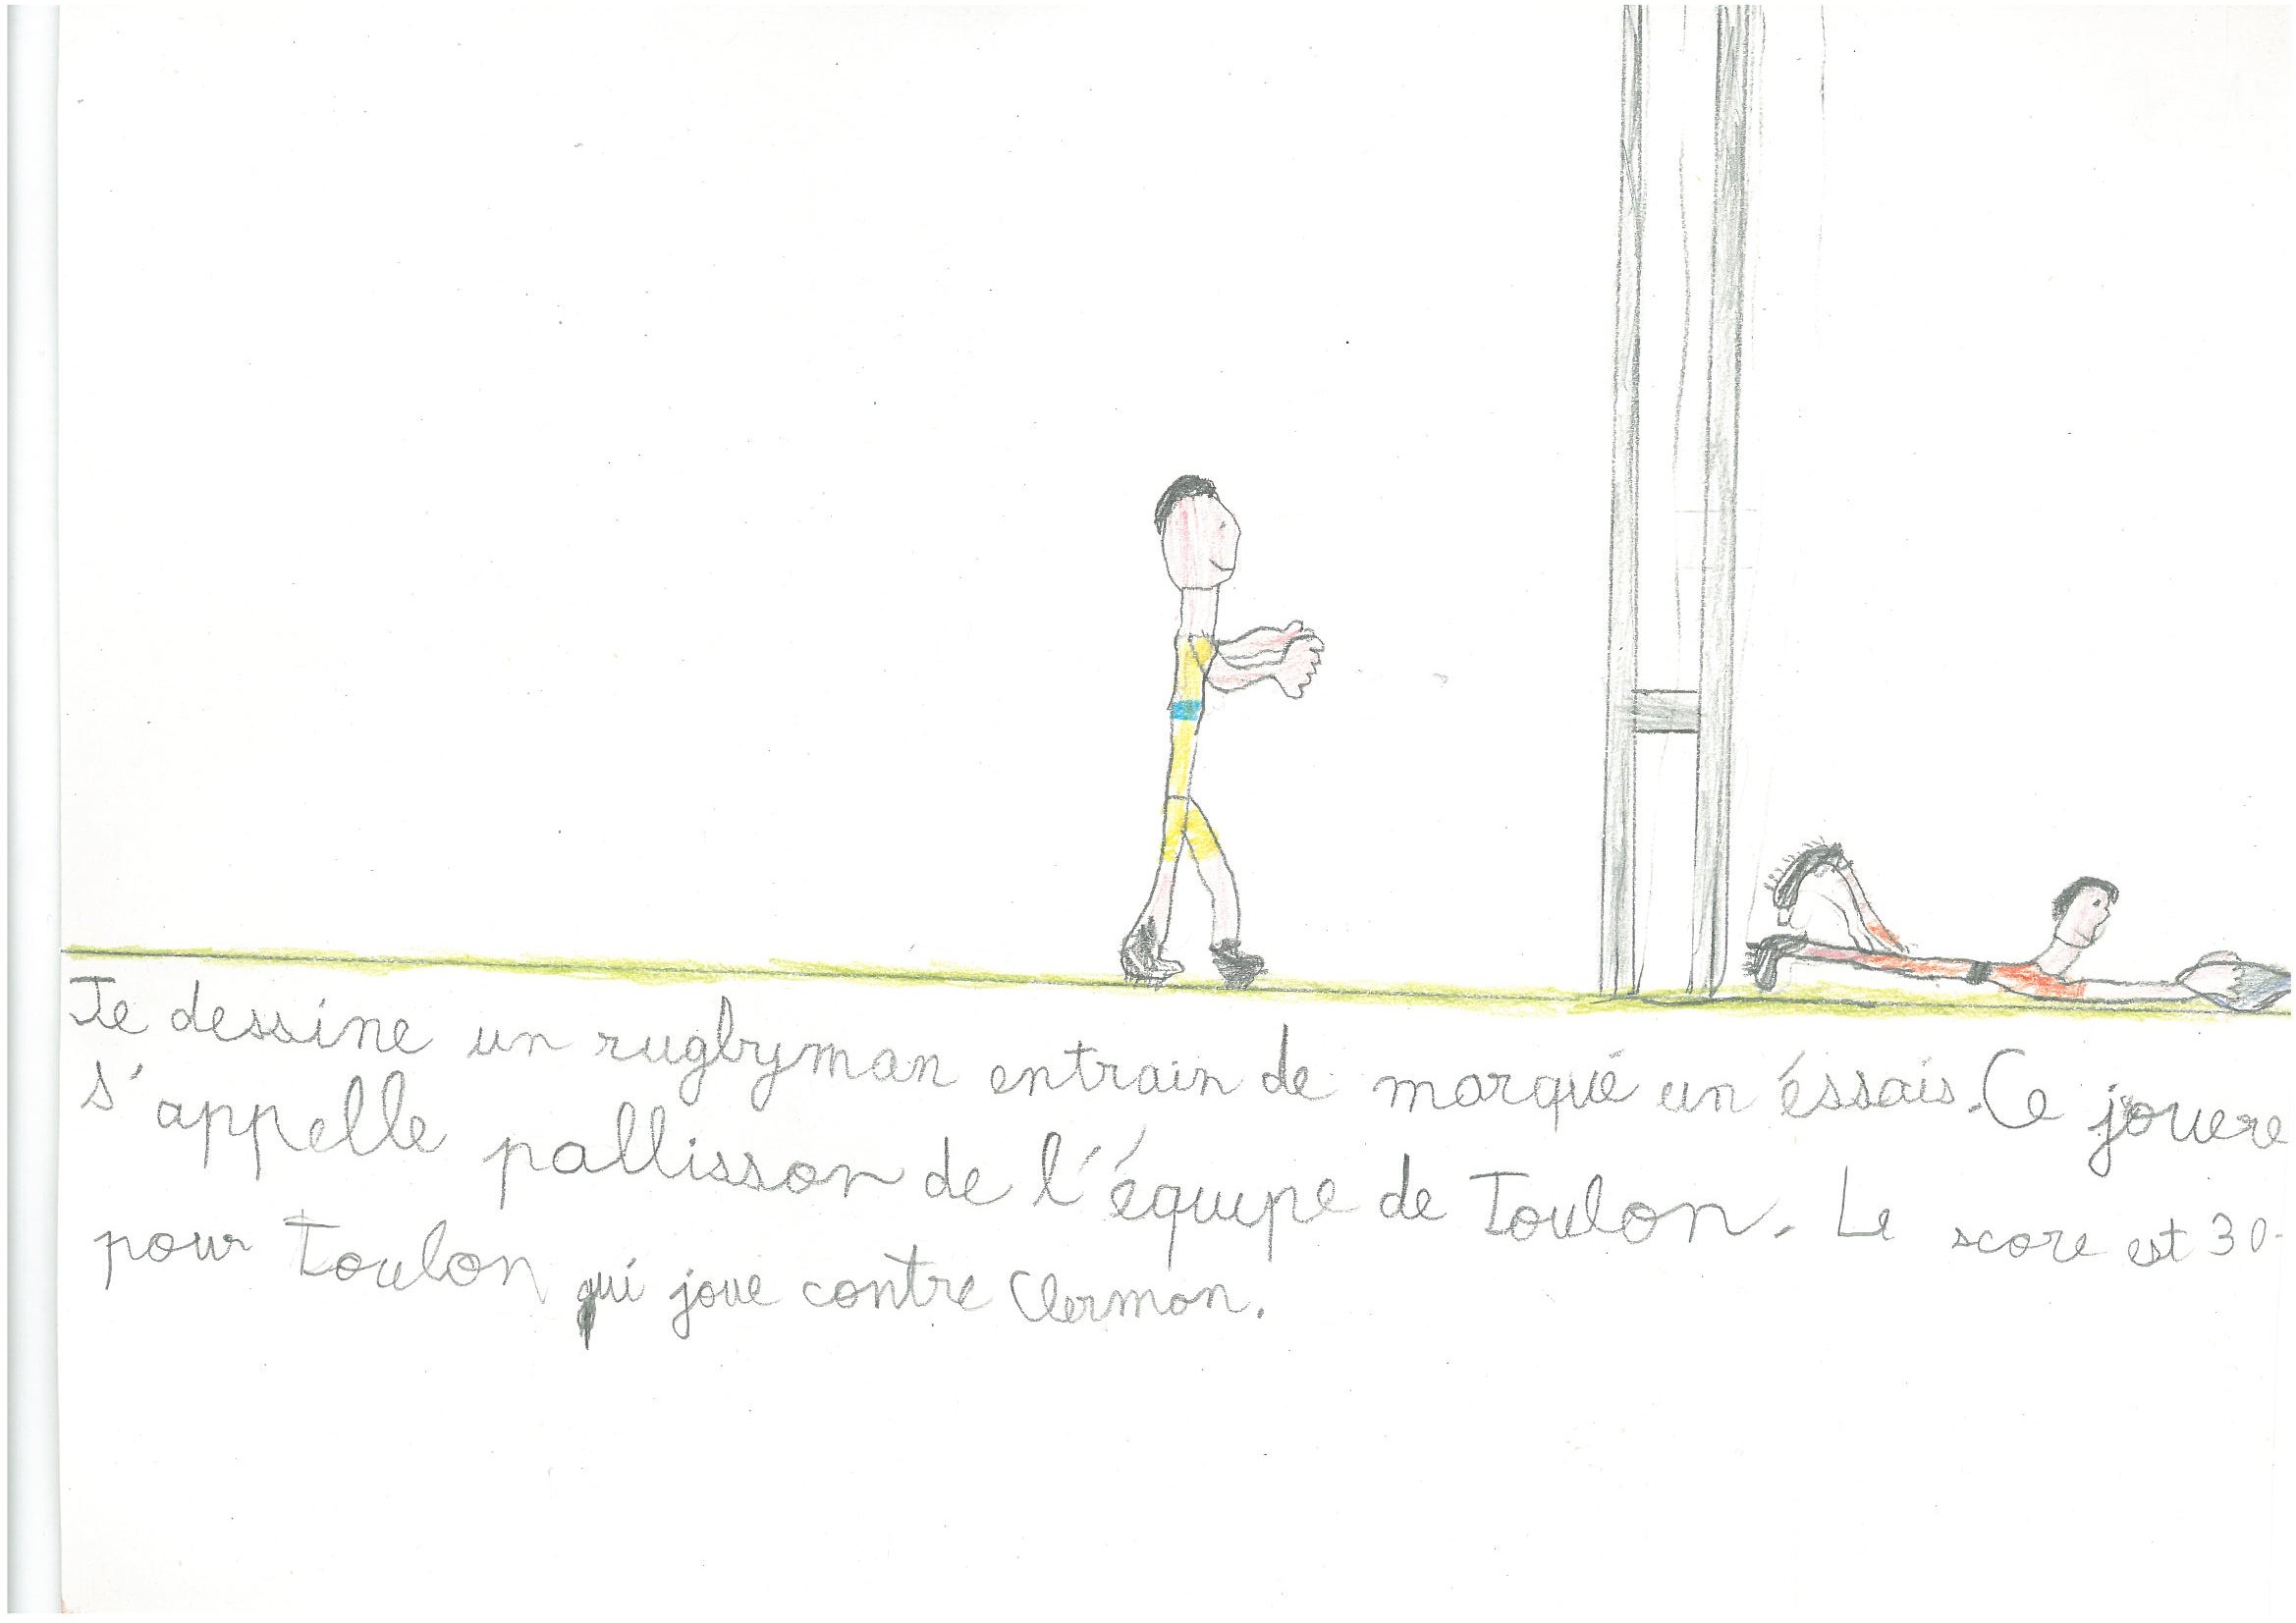 Je dessine un rugbyman entrain de marqué un éssais. Ce jouere
s'appelle pallisson de l'équipe de Toulon. Le score est 30-
pour Toulon qui joue contre Clermon.